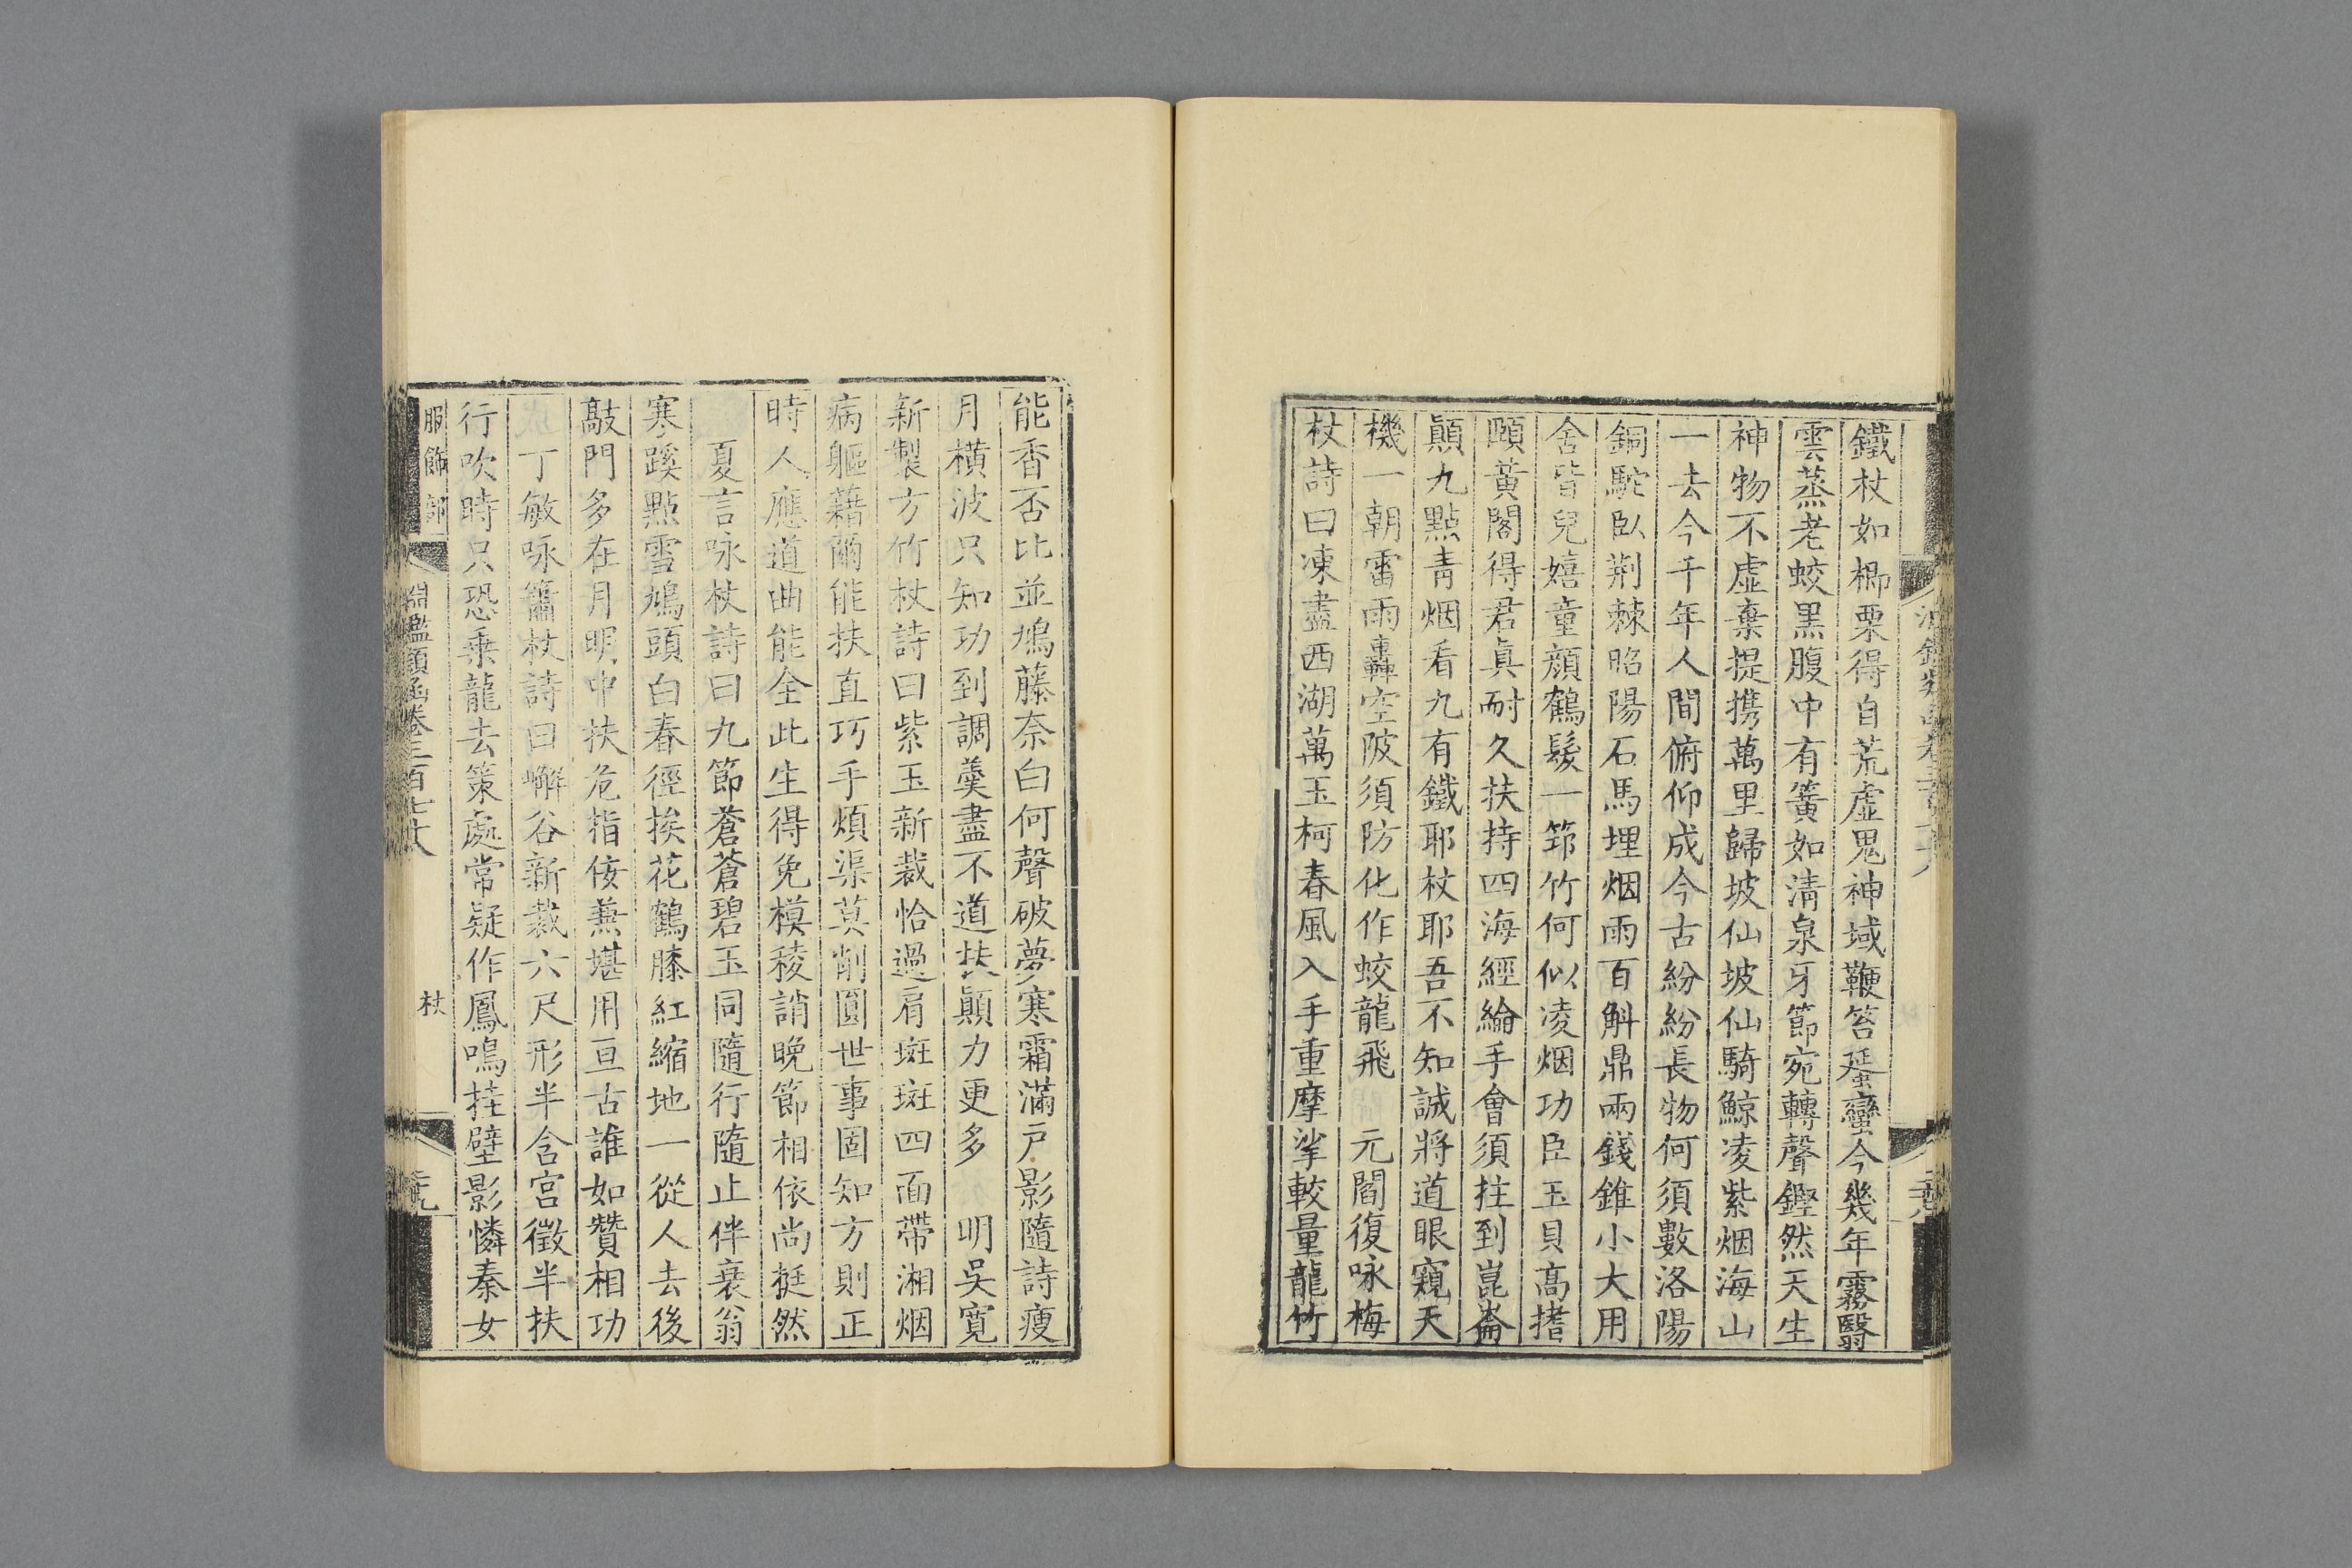 鐵杖如楖栗得自荒虛鬼神域鞭笞蜑蠻今幾年霧翳
雲蒸老蛟黑腹中有簧如清泉牙節宛轉聲鏗然天生
神物不虛棄提携萬里歸坡仙坡仙騎鯨凌紫烟海山
一去今千年人間俯仰成今古紛紛長物何須數洛陽
銅駝臥荆棘昭陽石馬埋烟雨百斛鼎兩錢錐小大用
舍皆兒嬉童顏鶴髮一筇竹何似凌烟功臣玉具高撐
頤黃閣得君真耐久扶持四海經綸手會須拄到崑崙
顛九點青烟看九有鐵耶杖耶吾不知誠將道眼窺天
機一朝雷雨轟空陂須防化作蛟龍飛　元閻復咏梅
杖詩曰凍盡西湖萬玉柯春風入手重摩挲較量龍竹
能香否比並鳩藤奈白何聲破夢寒霜滿戶影隨詩瘦
月橫波只知功到調羹盡不道扶顛力更多　明吳寬
新製方竹杖詩曰紫玉新裁恰過肩斑斑四面帶湘烟
病軀藉爾能扶直巧手煩渠莫削圓世事固知方則正
時人應道曲能全此生得免模稜誚晚節相依尚挺然
夏言咏杖詩曰九節蒼蒼碧玉同隨行隨止伴衰翁
寒蹊點雪鳩頭白春徑挨花鶴膝紅縮地一從人去後
敲門多在月明中扶危指佞無堪用亘古誰如贊相功
丁敏咏簫杖詩曰嶰谷新裁六尺形半含宮徵半扶
行吹時只恐乘龍去策處常疑作鳳鳴挂壁影憐秦女
服飾部
淵鑑類函卷三百七十八
杖